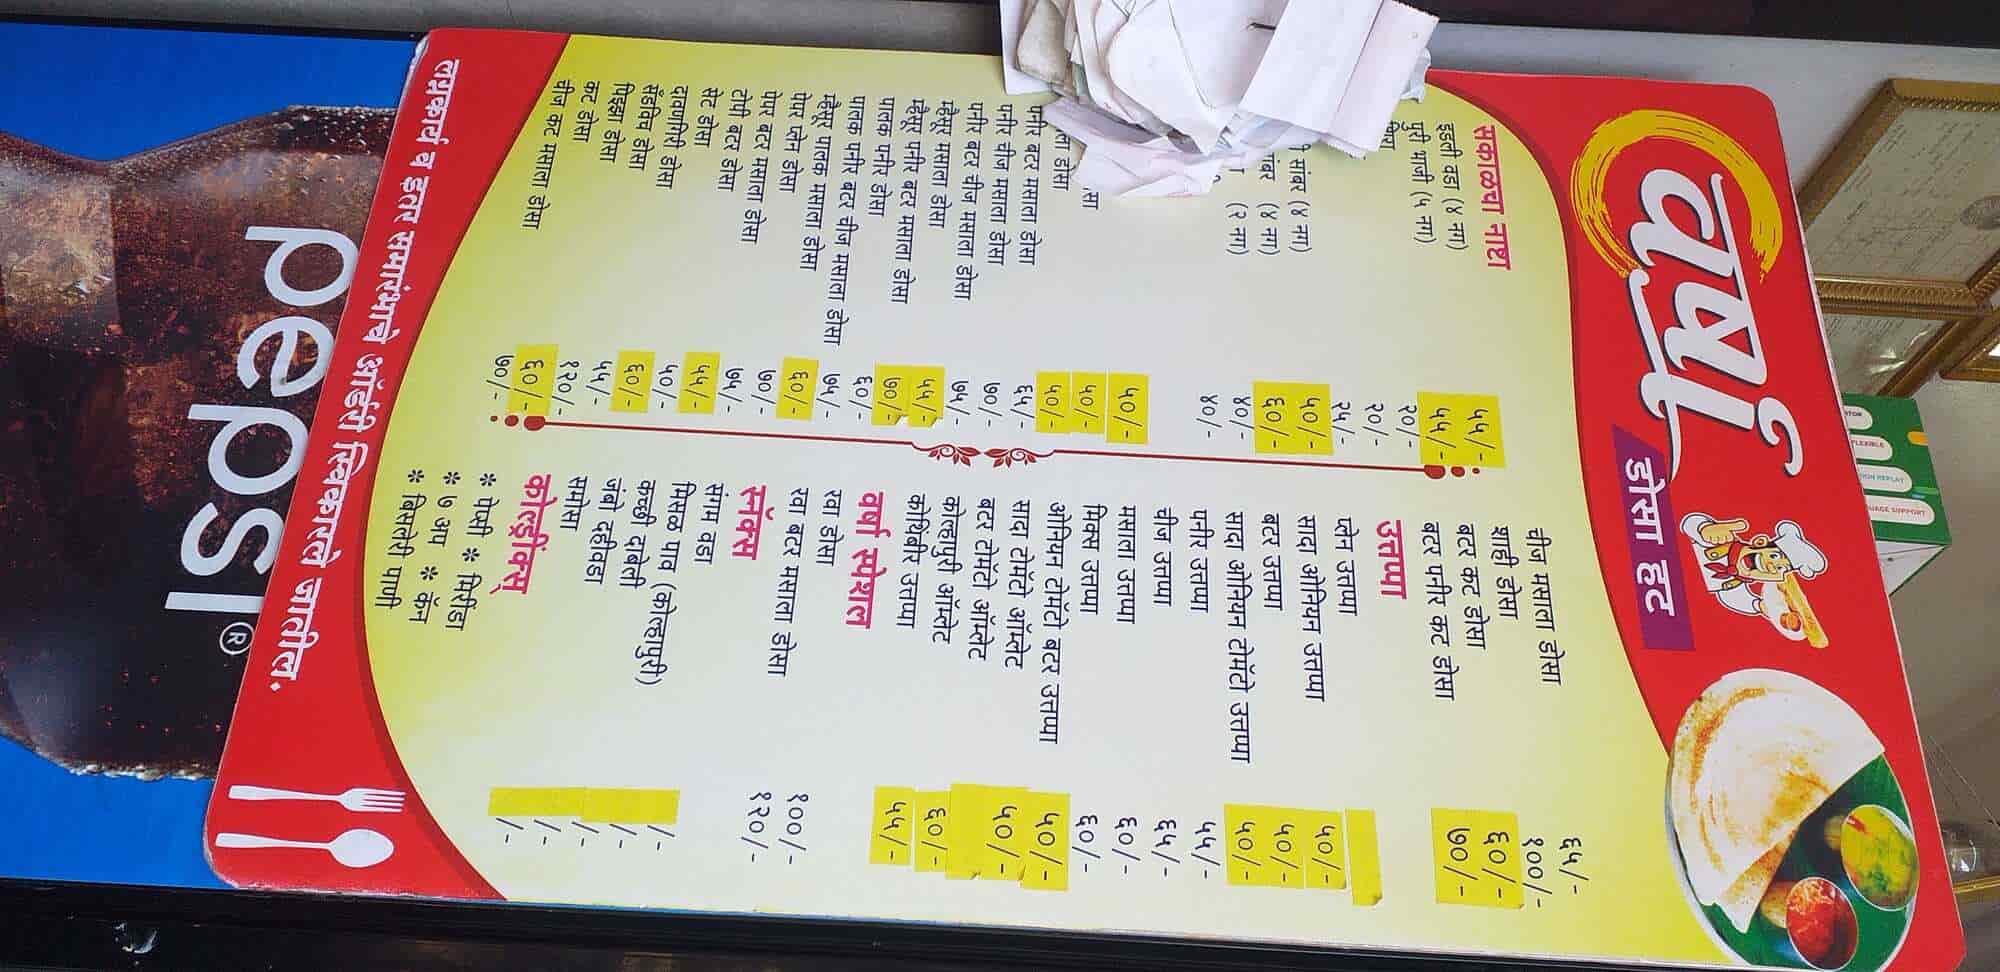 वर्षा
डोसा हट
सकाळचा नाष्टा
इडली वडा (४ नग)
पुरी भाजी (५ नग)
सांबर (४ नग)
(४ नग)
(२ नग)
डोसा
पनीर बटर मसाला डोसा
पनीर चीज मसाला डोसा
पनीर बटर चीज मसाला डोसा
म्हैसूर मसाला डोसा
म्हैसूर पनीर बटर मसाला डोसा
पालक पनीर डोसा
पालक पनीर बटर चीज मसाला डोसा
म्हैसूर पालक मसाला डोसा
पेपर प्लेन डोसा
पेपर बटर मसाला डोसा
टोपी बटर डोसा
सेट डोसा
दावणगिरी डोसा
सँडवीच डोसा
पिझ्झा डोसा
कट डोसा
चीज कट मसाला डोसा
५५/-
५५/-
२०/-
२०/-
२५/-
५०/-
६०/-
४०/-
४०/-
५०/-
५०/-
५०/-
६५/-
७०/-
७५/-
५५/-
७०/-
६०/-
७५/-
६०/-
७०/-
७५/-
५५/-
५०/-
६०/-
५५/-
१२०/-
६०/-
७०/-
चीज मसाला डोसा
शाही डोसा
बटर कट डोसा
बटर पनीर कट डोसा
उत्तप्पा
प्लेन उत्तप्पा
सादा ओनियन उत्तप्पा
बटर उत्तप्पा
सादा ओनियन टोमॅटो उत्तप्पा
पनीर उत्तप्पा
चीज उत्तप्पा
मसाला उत्तप्पा
मिक्स उत्तप्पा
ओनियन टोमॅटो बटर उत्तप्पा
सादा टोमॅटो ऑम्लेट
बटर टोमॅटो ऑम्लेट
कोल्हापुरी ऑम्लेट
कोथिंबीर उत्तप्पा
वर्षा स्पेशल
रवा डोसा
रवा बटर मसाला डोसा
स्नॅक्स
संगम वडा
मिसळ पाव (कोल्हापुरी)
कच्छी दाबेली
जंबो दहीवडा
समोसा
कोल्ड्रींक्स्
* पेप्सी * मिरींडा
* ७ अप * कॅन
* बिसलेरी पाणी
६५/-
१००/-
६०/-
७०/-
५०/-
५०/-
५०/-
५५/-
६५/-
६०/-
६०/-
५०/-
५०/-
६०/-
५५/-
१००/-
१२०/-
/-
/-
/-
/-
/-
लग्नकार्य व इतर समारंभाचे ऑर्डरी स्विकारले जातील.
pepsi®